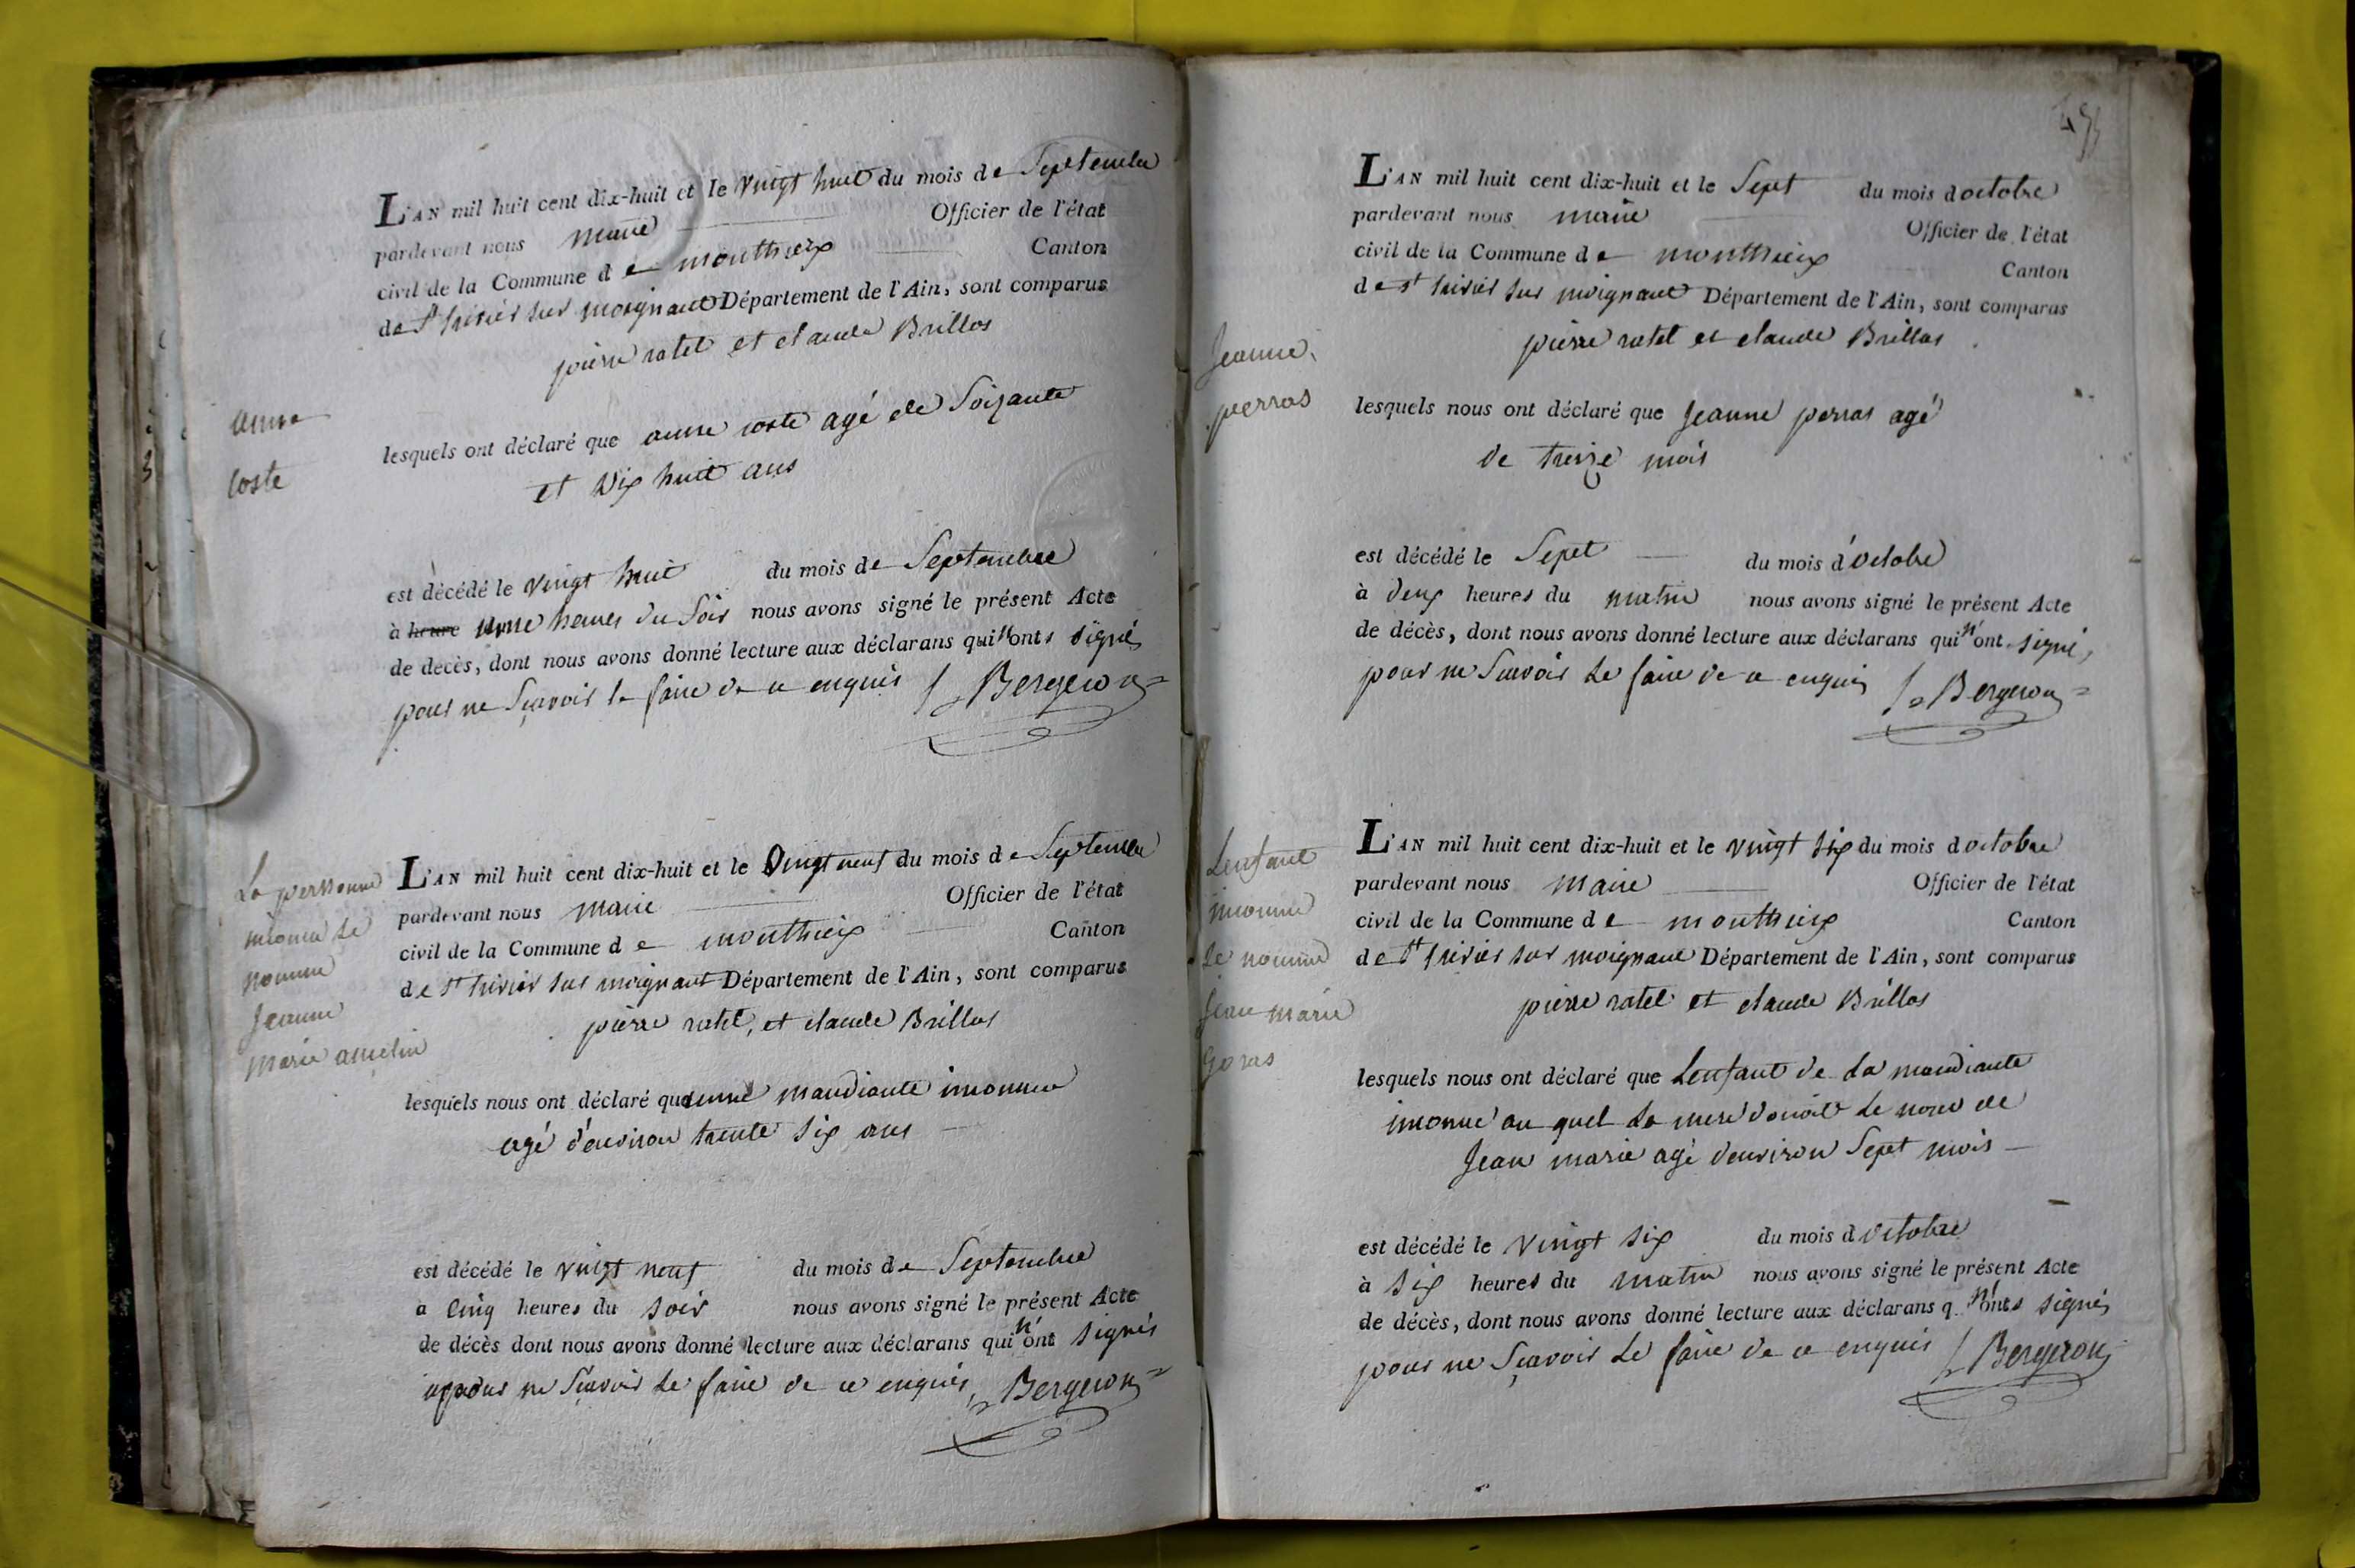 L'AN mil huit cent dix-huit et le vingt huit du mois de Septembre
pardevant nous maire Officier de l'état
civil de la Commune de monthieux Canton
de St trivier sur moignant Département de l'Ain, sont comparus
pierre ratel et claude Brillas
anne
coste
lesquels ont déclaré que anne coste agé de Soixante
et Dix huit ans
est décédé le vingt huit du mois de Septembre
à heure onze heures du Soir nous avons signé le présent Acte
de décès, dont nous avons donné lecture aux déclarans qui n'onts signés
pour ne Sçavoir le faire de ce enquis Bergeron
La personne
inconue se
nomme
Jeanne
Marie amelin
L'AN mil huit cent dix-huit et le Vingt neuf du mois de Septembre
pardevant nous maire Officier de l'état
civil de la Commune de monthieux Canton
de St trivier sur moignant Département de l'Ain, sont comparus
pierre ratel, et claude Brillas
lesquels nous ont déclaré que une mandiante inconnue
agé d'environ trente six ans
est décédé le vingt neuf du mois de Septembre
à Cinq heures du soir nous avons signé le présent Acte
de décès dont nous avons donné lecture aux déclarans qui n'ont signés
pour ne Sçavoir le faire de ce enquis Bergeron
L'AN mil huit cent dix-huit et le Sept du mois d octobre
pardevant nous maire Officier de l'état
civil de la Commune de monthieux Canton
de St trivier sur moignant Département de l'Ain, sont comparus
pierre ratel et claude Brillas
Jeanne
perras
lesquels nous ont déclaré que Jeanne perras agé
de treize mois
est décédé le Sept du mois d'octobre
à deux heures du matin nous avons signé le présent Acte
de décès, dont nous avons donné lecture aux déclarans qui n'ont signé,
pour ne Sçavoir le faire de ce enquis Bergeron
Lenfant
inconnu
se nomme
Jean marie
L'AN mil huit cent dix-huit et le vingt six du mois d octobre
pardevant nous maire Officier de l'état
civil de la Commune de monthieux Canton
de St trivier sur moignant Département de l'Ain, sont comparus
pierre ratel et claude Brillas
lesquels nous ont déclaré que Lenfant de La mandiante
inconue au quel La mere donoit le nom de
Jean marie agé d'environ Sept mois
est décédé le vingt six du mois d octobre
à six heures du matin nous avons signé le présent Acte
de décès, dont nous avons donné lecture aux déclarans q n'onts signés
pour ne Sçavoir le faire de ce enquis Bergeron